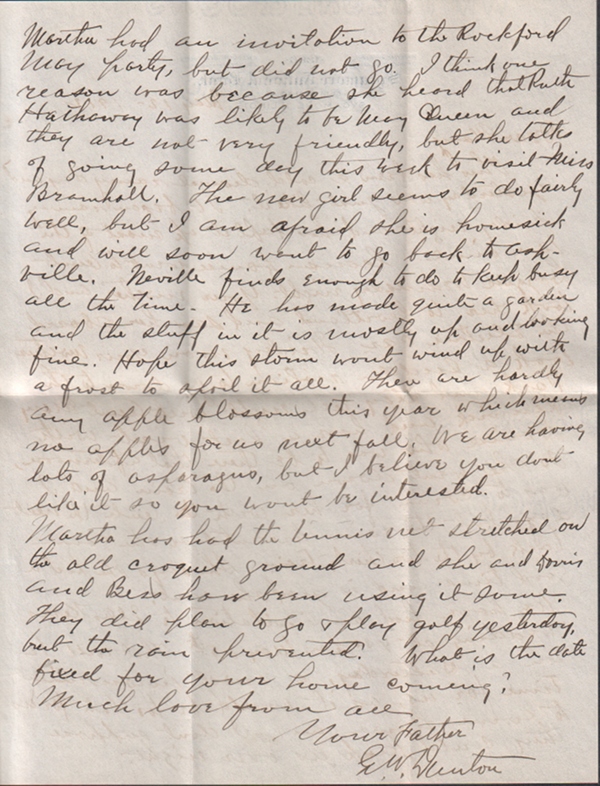 Martha had an invitation to the Rockford
May party, but did not go. I think one
reason was because she heard that Ruth
Hathaway was likely to be May Queen and
they are not very friendly, but she talks
of going some day this week to visit Miss
Bramhall. The new girl seems to do fairly
well, but I am afraid she is homesick
and will soon want to go back to Ash-
ville. Neville finds enough to do to keep busy
all the time. He has made quite a garden
and the stuff in it is mostly up and looking
fine. Hope this storm wont wind up with
a frost to spoil it all. There are hardly
any apple blossoms this year which means
no apples for us next fall. We are having
lots of asparagus, but I believe you dont
like it so you wont be interested.
Martha has had the tennis net stretched on
the old croquet ground and she and Dorris
and Bess have been using it some.
They did plan to go & play golf yesterday,
but the rain prevented. What is the date
fixed for your home coming?
Much love from all
Your Father
G.W. Dunton